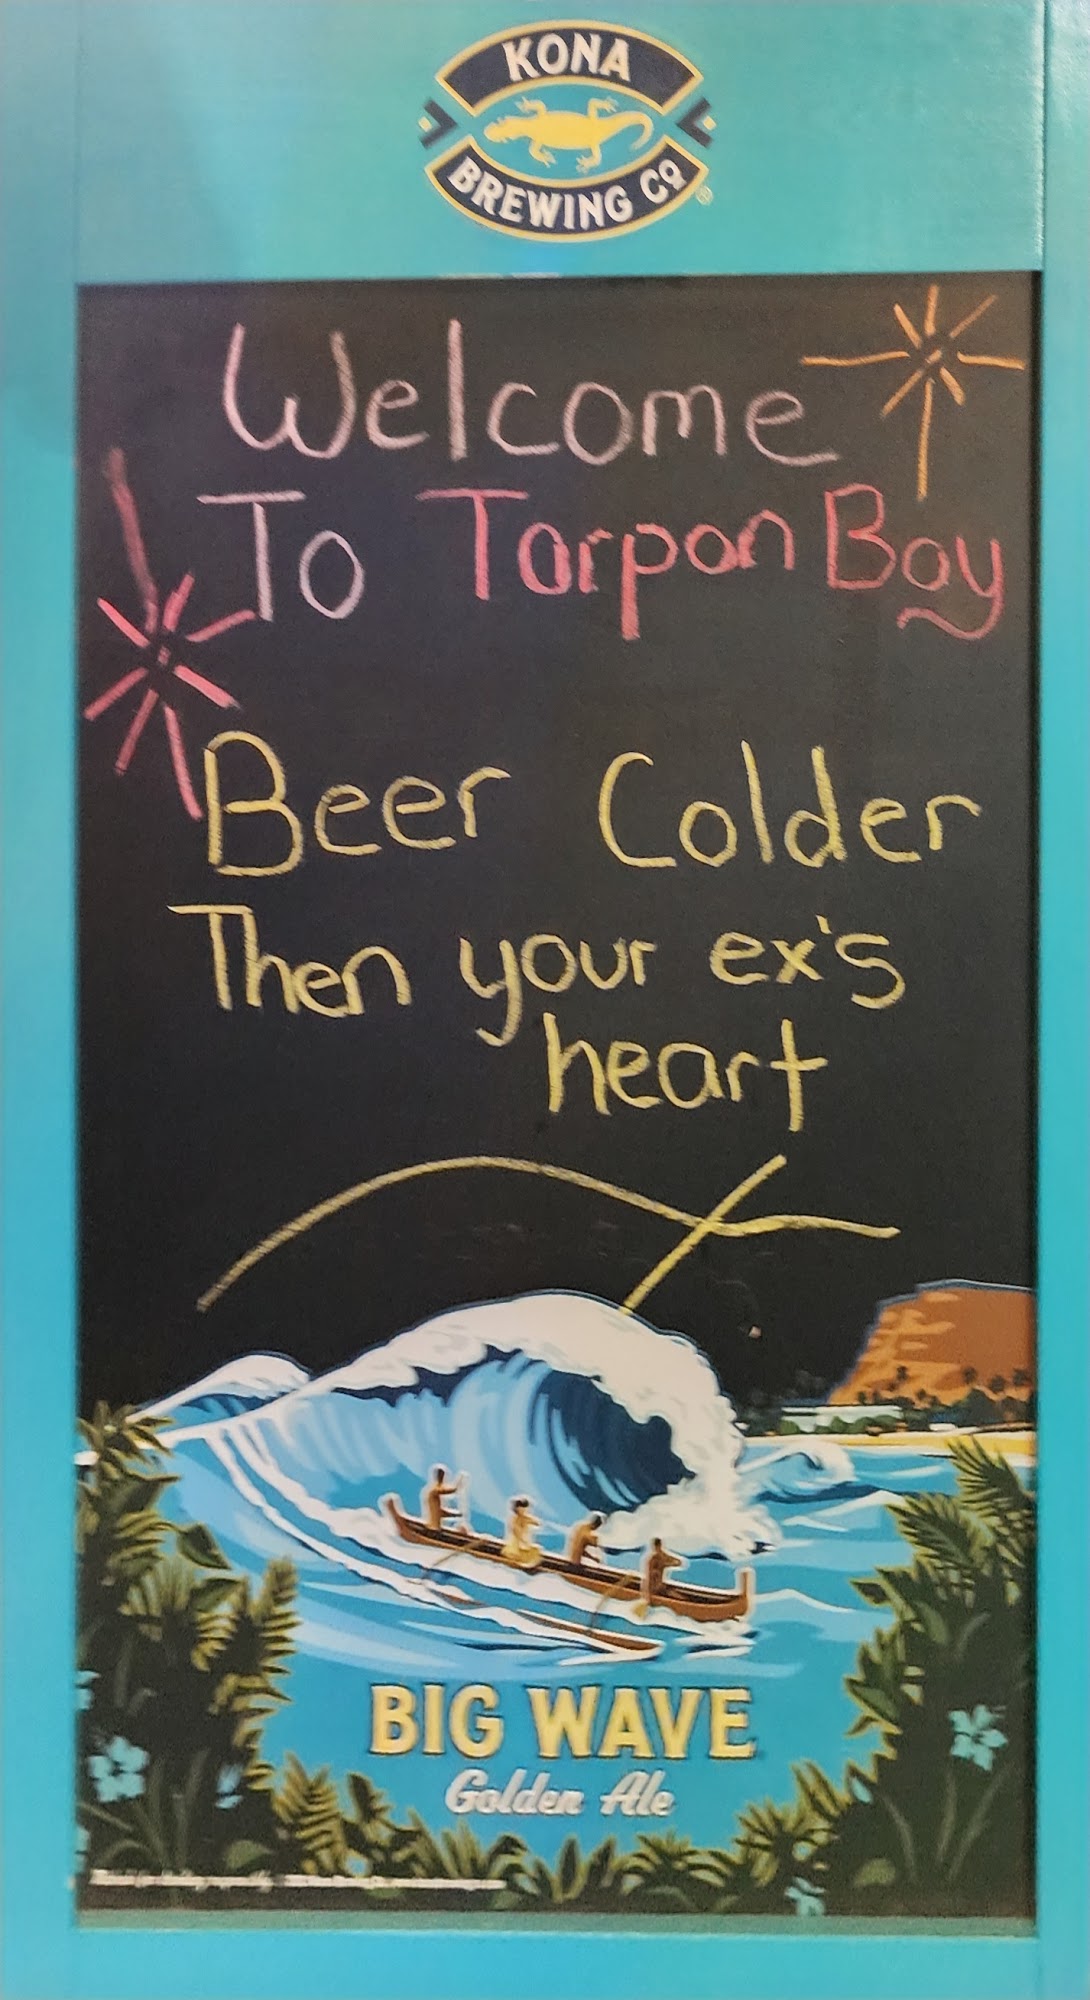 KONA
BREWING CO
®
Welcome
To Tarpon Bay
Beer Colder
Then your ex's
heart
BIG WAVE
Golden Ale